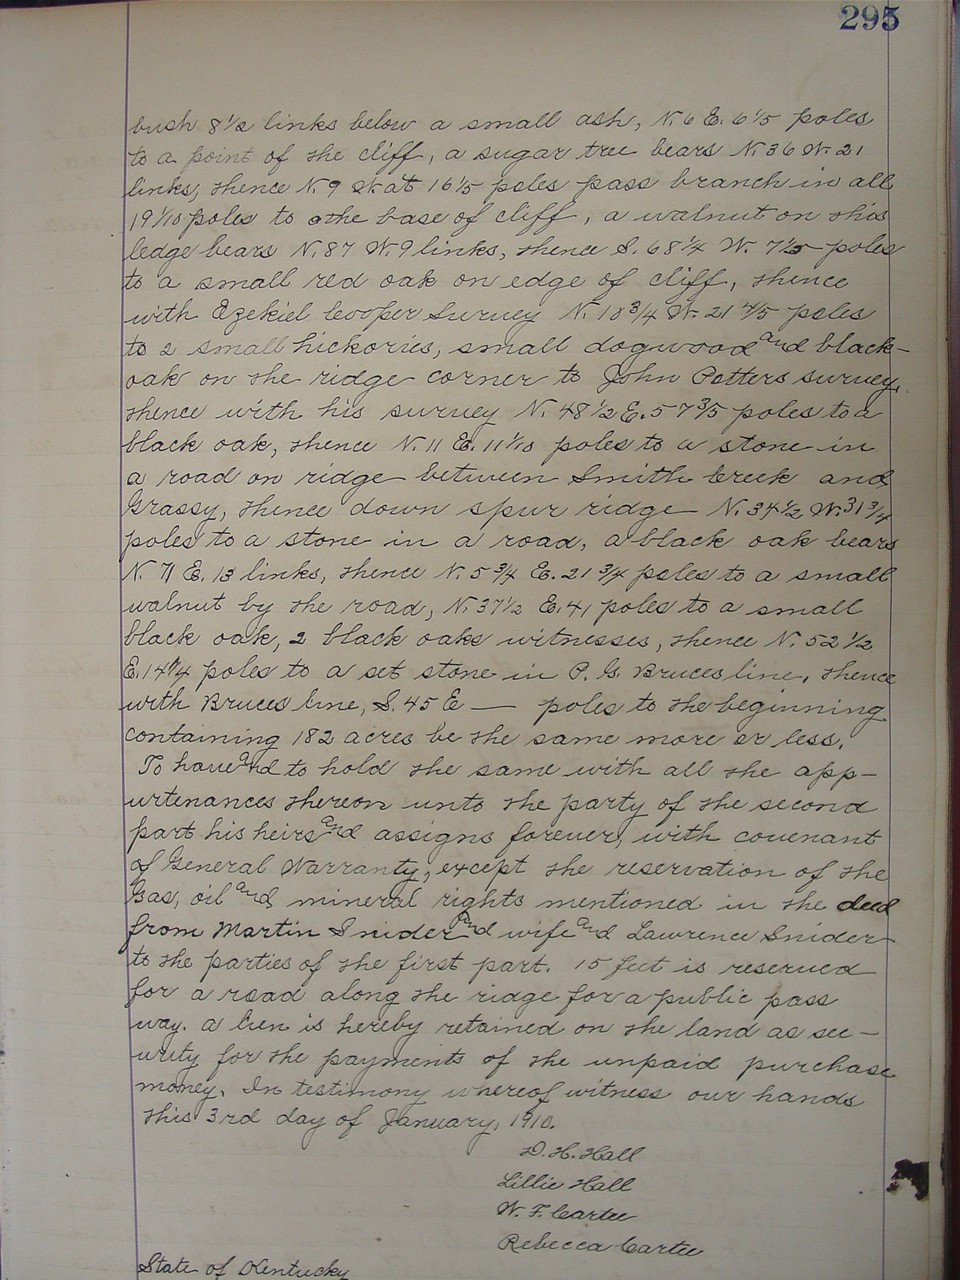 295
bush 8 1/2 links below a small ash, N. 6 E. 6 1/5 poles
to a point of the cliff, a sugar tree bears N. 36 W. 21
links, thence N. 9 W. at 16 1/5 poles pass branch in all
19 1/10 poles to the base of cliff, a walnut on this
ledge bears N. 87 W. 9 links, thence S. 68 1/4 W. 7 1/5 poles
to a small red oak on edge of cliff, thence
with Ezekiel Cooper Survey N. 10 3/4 W. 21 4/5 poles
to 2 small hickories, small dogwood and black-
oak on the ridge corner to John Potters survey,
thence with his survey N. 48 1/2 E. 57 3/5 poles to a
black oak, thence N. 11 E. 11 1/10 poles to a stone in
a road on ridge between Smith Creek and
Grassy, thence down spur ridge N. 34 1/2 W. 31 3/4
poles to a stone in a road, a black oak bears
N. 71 E. 13 links, thence N. 5 3/4 E. 21 3/4 poles to a small
walnut by the road, N. 37 1/2 E. 41 poles to a small
black oak, 2 black oaks witnesses, thence N. 52 1/2
E. poles to a set stone in P. G. Bruces line, thence
with Bruces line, S. 45 E — poles to the beginning
containing 182 acres be the same more or less.
To have and to hold the same with all the app-
urtenances thereon unto the party of the second
part his heirs and assigns forever, with covenant
of General Warranty, except the reservation of the
Gas, oil and mineral rights mentioned in the deed
from Martin Snider and wife and Lawrence Snider
to the parties of the first part. 15 feet is reserved
for a road along the ridge for a public pass
way. a lien is hereby retained on the land as sec-
urity for the payments of the unpaid purchase
money. In testimony whereof witness our hands
this 3rd day of January, 1910.
D. H. Hall
Lillie Hall
W. F. Cartee
Rebecca Cartee
State of Kentucky